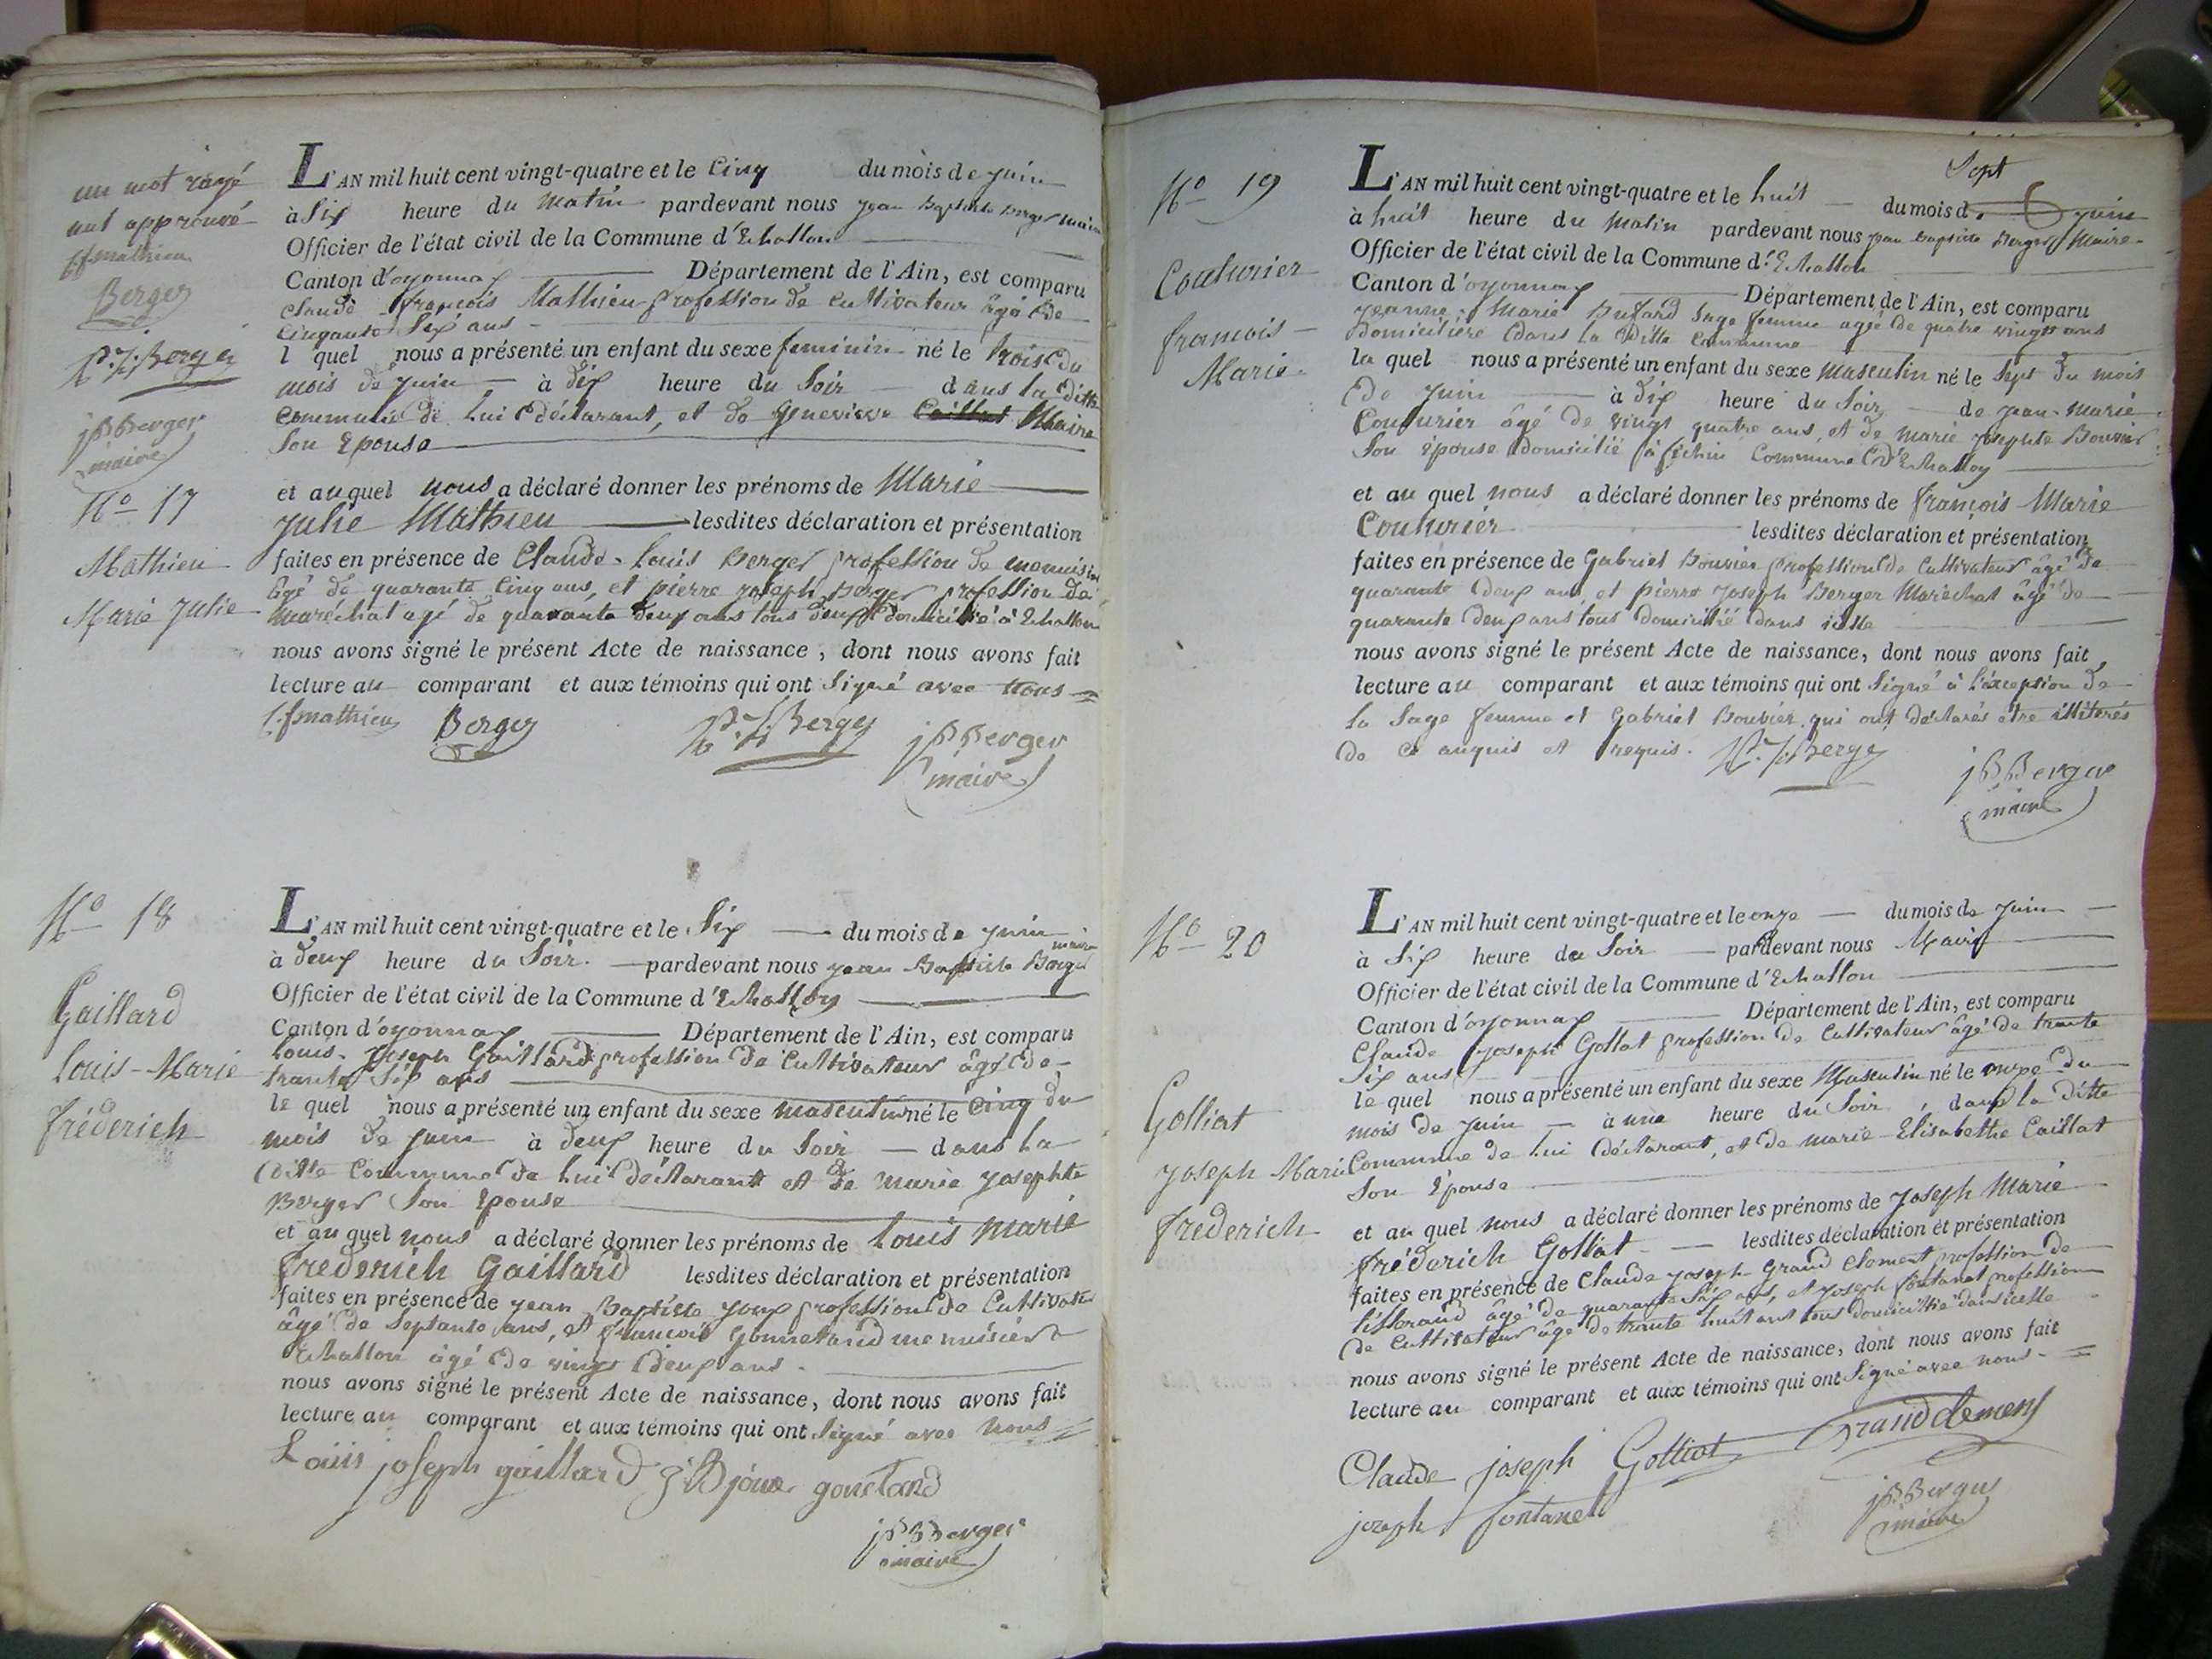 un mot rayé
nul approuvé
Berger
P. J. Berger
jB Berger
maire
No 17
Mathieu
Marie Julie
L'AN mil huit cent vingt-quatre et le Cinq du mois de juin
à Six heure du Matin pardevant nous jean Baptiste Berger maire
Officier de l'état civil de la Commune d'Echallon
Canton d'oyonnax Département de l'Ain, est comparu
claude françois Mathieu profession de cultivateur âgé de
Cinquante Six ans
l quel nous a présenté un enfant du sexe feminin né le trois du
mois de juin à dix heure du Soir dans la ditte
Commune de lui déclarant, et de Genevieve
Son Epouse
et au quel nous a déclaré donner les prénoms de Marie
Julie Mathieu lesdites déclaration et présentation
faites en présence de Claude-Louis Berger profession de menuisier
âgé de quarante Cinq ans, et pierre joseph Berger profession de
maréchal agé de quarante deux ans tous deux domicilié à Echallon
nous avons signé le présent Acte de naissance, dont nous avons fait
lecture au comparant et aux témoins qui ont Signé avec nous
C. f mathieu Berger P. J. Berger jB Berger
maire
No 18
Gaillard
Louis-Marie
fréderich
L'AN mil huit cent vingt-quatre et le Six du mois de juin
à deux heure du Soir pardevant nous jean Baptiste Berger maire
Officier de l'état civil de la Commune d'Echallon
Canton d'oyonnax Département de l'Ain, est comparu
Louis-Joseph Gaillard profession de Cultivateur âgé de
trante Six ans
le quel nous a présenté un enfant du sexe masculin né le Cinq du
mois de juin à deux heure du Soir dans la
ditte Commune de lui déclarant et de marie josephte
Berger Son Epouse
et au quel nous a déclaré donner les prénoms de Louis Marie
frederich Gaillard lesdites déclaration et présentation
faites en présence de jean Baptiste joux profession de Cultivateur
âgé de Septante ans, et françois Gonnetand menuisier
Echallon âgé de vingt deux ans
nous avons signé le présent Acte de naissance, dont nous avons fait
lecture au comparant et aux témoins qui ont Signé avec nous
Louis joseph gaillard j B joux gonetand
jB Berger
maire
No 19
Couturier
françois
Marie
Sept
L'AN mil huit cent vingt-quatre et le huit du mois d juin
à huit heure du Matin pardevant nous jean Baptiste Berger Maire
Officier de l'état civil de la Commune d'Echallon
Canton d'oyonnax Département de l'Ain, est comparu
jeanne-Marie Sage femme agée de quatre vingts ans
domiciliée dans la ditte Commune
la quel nous a présenté un enfant du sexe masculin né le Sept du mois
de juin à dix heure du Soir de jean-marie
Couturier âgé de vingt quatre ans, et de marie josephte Bouvier
Son Epouse domicilié à Commune d'Echallon
et au quel nous a déclaré donner les prénoms de françois Marie
Couturier lesdites déclaration et présentation
faites en présence de Gabriel Bouvier profession de Cultivateur âgé de
quarante deux ans, et pierre Joseph Berger Maréchal âgé de
quarante deux ans tous domicilié dans icelle
nous avons signé le présent Acte de naissance, dont nous avons fait
lecture au comparant et aux témoins qui ont Signé à l'éxception de
la Sage femme et Gabriel Bouvier qui ont déclarés être illiterés
de ce anquis et requis. P. J. Berger
jB Berger
maire
No 20
Golliat
joseph Marie
frederich
L'AN mil huit cent vingt-quatre et le onze du mois de juin
à Six heure du Soir pardevant nous Maire
Officier de l'état civil de la Commune d'Echallon
Canton d'oyonnax Département de l'Ain, est comparu
Claude Joseph Gollat profession de Cultivateur âgé de trante
Six ans
le quel nous a présenté un enfant du sexe Masculin né le onze du
mois de juin à une heure du Soir, dans la ditte
Commune de lui déclarant, et de marie-Elisabethe Caillat
Son Epouse
et au quel nous a déclaré donner les prénoms de joseph Marie
fréderich Golliat lesdites déclaration et présentation
faites en présence de Claude joseph Grand Clement profession de
tisserand âgé de quarante Six ans, et joseph fontanet profession
de Cultivateur âgé de trante huit ans tous domicilié dans icelle
nous avons signé le présent Acte de naissance, dont nous avons fait
lecture au comparant et aux témoins qui ont Signé avec nous
Claude joseph Golliat Grandclement
joseph fontanet
jB Berger
maire